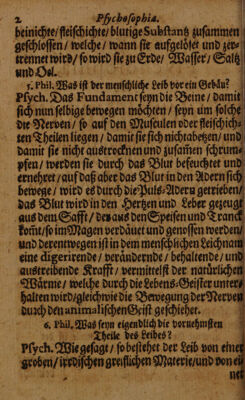 2 Psychosophia.
beinichte/fleischichte/blutige Substantz zusammen
geschlossen/ welche/ wann sie auffgelöset und zer-
trennet wird/ so wird sie zu Erde/ Wasser/ Saltz
und Oel.
5. Phil. Was ist der menschliche Leib vor ein Gebäu?
Psych. Das Fundament seyn die Beine/ damit
sich nun selbige bewegen möchten/ seyn um solche
die Nerven/ so auf den Musculen oder fleischich-
ten Theilen liegen/ damit sie sich nicht abetzen/ und
damit sie nicht austrocknen und zusamen schrum-
pfen/ werden sie durch das Blut befeuchtet und
ernehret/ auf daß aber das Blut in den Adern sich
bewege/ wird es durch die Puls-Adern getrieben/
das Blut wird in den Hertzen und Leber gezeugt
aus dem Safft/ der aus den Speisen und Tranck
komt/ so im Magen verdäuet und genossen werden/
und derentwegen ist in dem menschlichen Leichnam
eine digerirende/ verändernde/ behaltende/ und
austreibende Krafft/ vermittelst der natürlichen
Wärme/ welche durch die Lebens-Geister unter-
halten wird/ gleichwie die Bewegung der Nerven
durch den animalischen Geist geschiehet.
6. Phil. Was seyn eigendlich die vornehmsten
Theile des Leibes?
Psych. Wie gesagt/ so bestehet der Leib von einer
groben/ irrdischen greifflichen Materie/ und von ei-
net